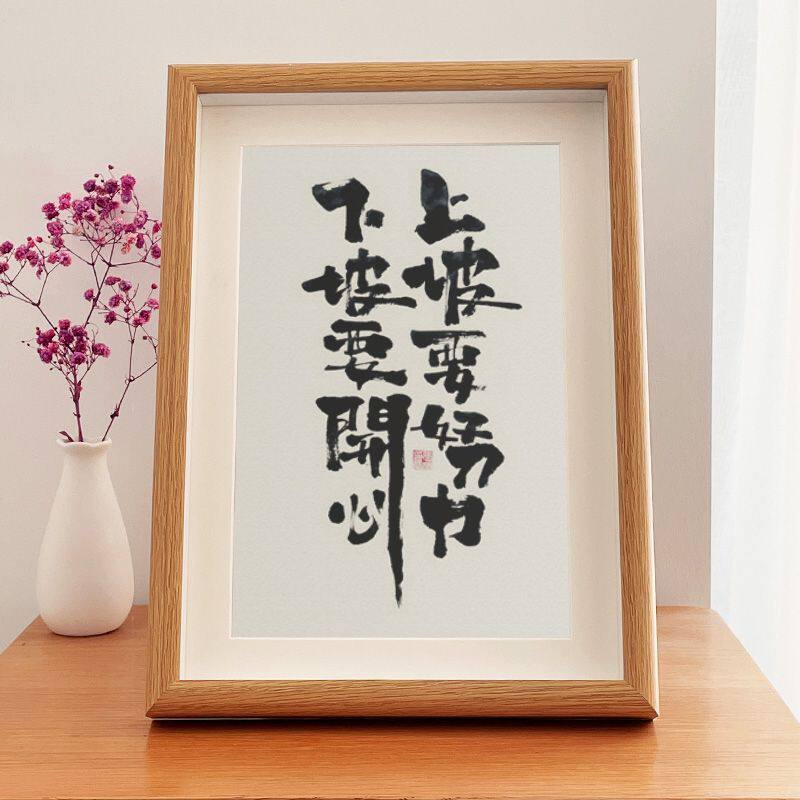 上坡要努力
下坡要開心